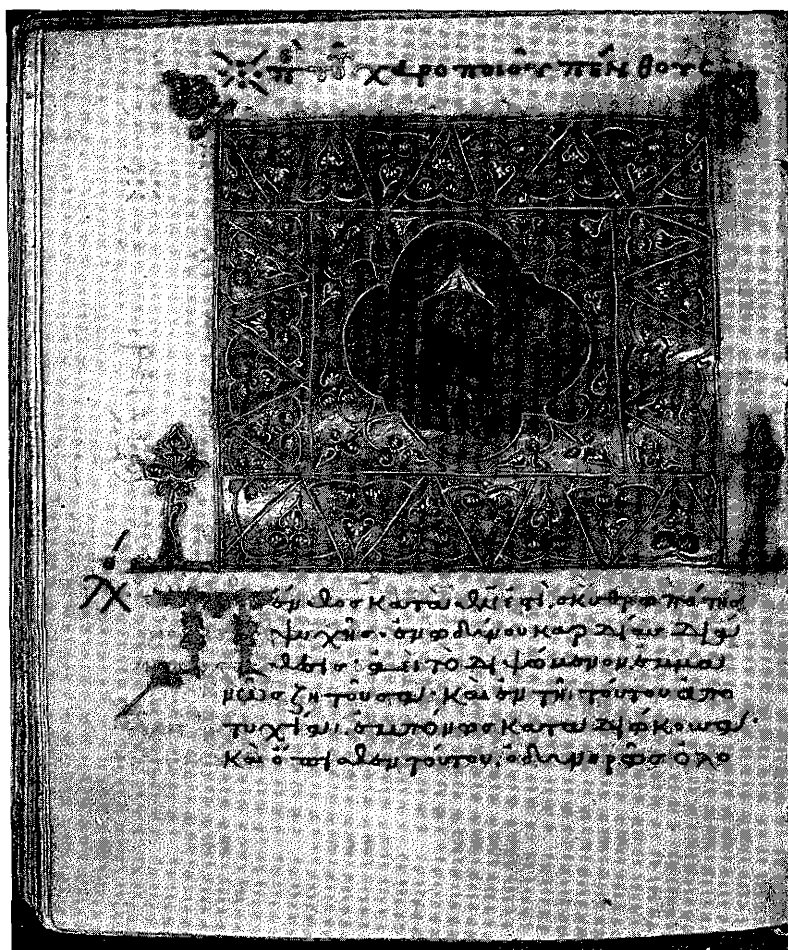 χαροποιοῦ πένθους
Πένθος κατὰ θν ἐστὶ, σκυθρωπότης
ψυχῆς· ἐνωδύνου καρδίας διά
θεσις· ἀεὶ τὸ διψώμενον ἐμμα
νῶς ζητοῦσα· καὶ ἐν τῆι τούτου ἀπο
τυχίαι, ἐμπόνως καταδιώκουσα·
καὶ ὄπισθεν τούτου, ὀδυνηρῶς ὀλο